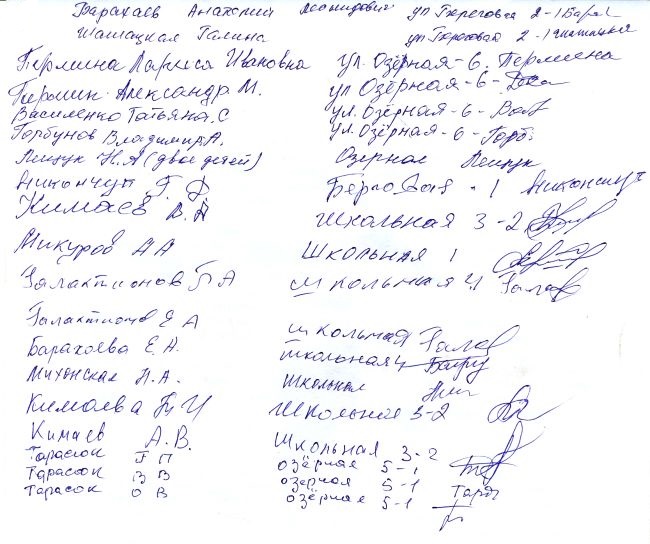 Барахаев Анатолий Леонидович ул Береговая 2-1 Барах
Шашацкая Галина ул Береговая 2-1
Пермина Лариса Ивановна ул. Озёрная-6. Пермина
Пермин Александр М. ул Озёрная-6-
Василенко Татьяна. С ул. Озёрная-6- Вас
Горбунов Владимир А. ул. Озёрная-6-Горб.
Н. А (двое детей) Озерная
Никончук Г. Ф Береговая-1 Никончук
Кимаев В. А Школьная 3-2
Микуров А А Школьная 1
Галактионов П А Школьная 4 Галак
Галактионов Е А школьная 4 Гала
Барахоева Е. А. школьная 4
Михонская Л. А. Школьная
Кимаева Т И Школьная 3-2
Кимаев А. В. Школьная 3-2
Тарасюк П П Озёрная 5-1
Тарасюк В В озерная 5-1 Тара
Тарасюк О В озёрная 5-1